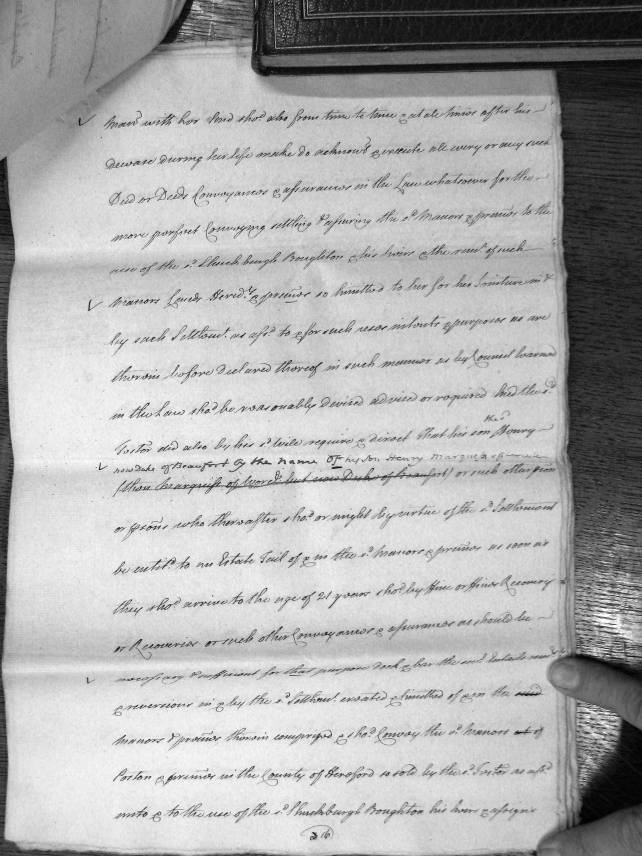 Marr? with her And sho.d also from time to time & at all times after his
decease during her life make do acknow.d & execute all every or any such
Deed or Deeds Conveyances & assurances in the Law whatsoever for the
more perfect Conveying settling & assuring the s.d Manors & prem̃es to the
use of the s.d Shuckburgh Boughton & his heirs & the rem.r of such
Manors Lands Hered.ts & prem̃es so limitted to her for her Jointure in &
by such Settlem.t as afs.d to & for such uses intents & purposes as are
therein before declared thereof in such manner as by Counsel learned
in the Law sho.d be reasonably devised advised or required And the s.d
Testor did also by his s.d Wile require & direct That his son the s.d Henry
now Duke of Beaufort by the name of his son Henry Marquis of
(then Marquiss of Worc.r but now Duke of Beaufort) or such other p̃son
or p̃sons who thereafter sho.d or might by virtue of the s.d Settlement
be entit.d to an Estate Tail of & in the s.d Manors & prem̃es as soon as
they sho.d arrive to the age of 21 years sho.d by Fine or Fines Recovery
or Recoveries or such other Conveyances & assurances as should be
necessary & sufficient for that purpose dock & bar the said Entails
& reversions in & by the s.d Settlem.t created & limitted of & in the said
Manors & prem̃es therein comprized & sho.d Convey the s.d Manors at of
Poston & prem̃es in the County of Hereford so sold by the s.d Testor as afs.d
unto & to the use of the s.d Shuckburgh Boughton his heirs & assigns
26